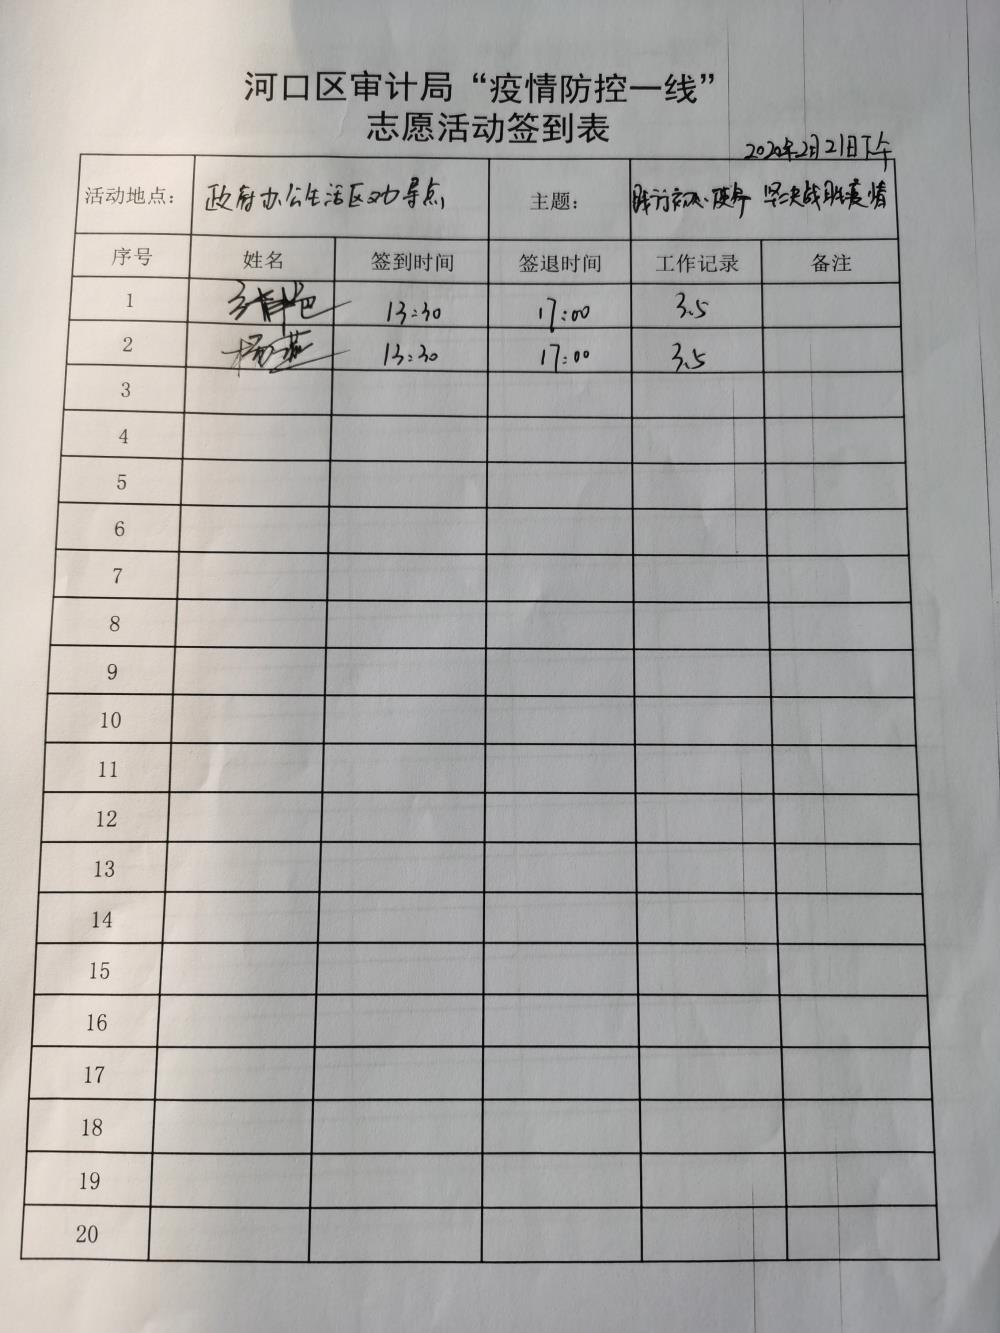 河口区审计局“疫情防控一线”
志愿活动签到表
2020年2月21日下午
活动地点： 政府办公生活区劝导点 主题： 践行初心使命 坚决战胜疫情
序号 姓名 签到时间 签退时间 工作记录 备注
1 13:30 17:00 3.5
2 杨燕 13:30 17:00 3.5
3
4
5
6
7
8
9
10
11
12
13
14
15
16
17
18
19
20